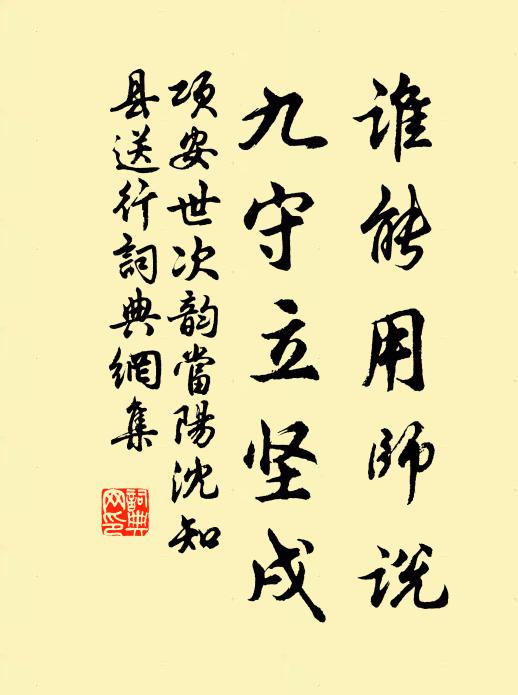 谁能用师说
九守立坚戍
项安世次韵當陽沈知
县送行詞典網集
詞典网印